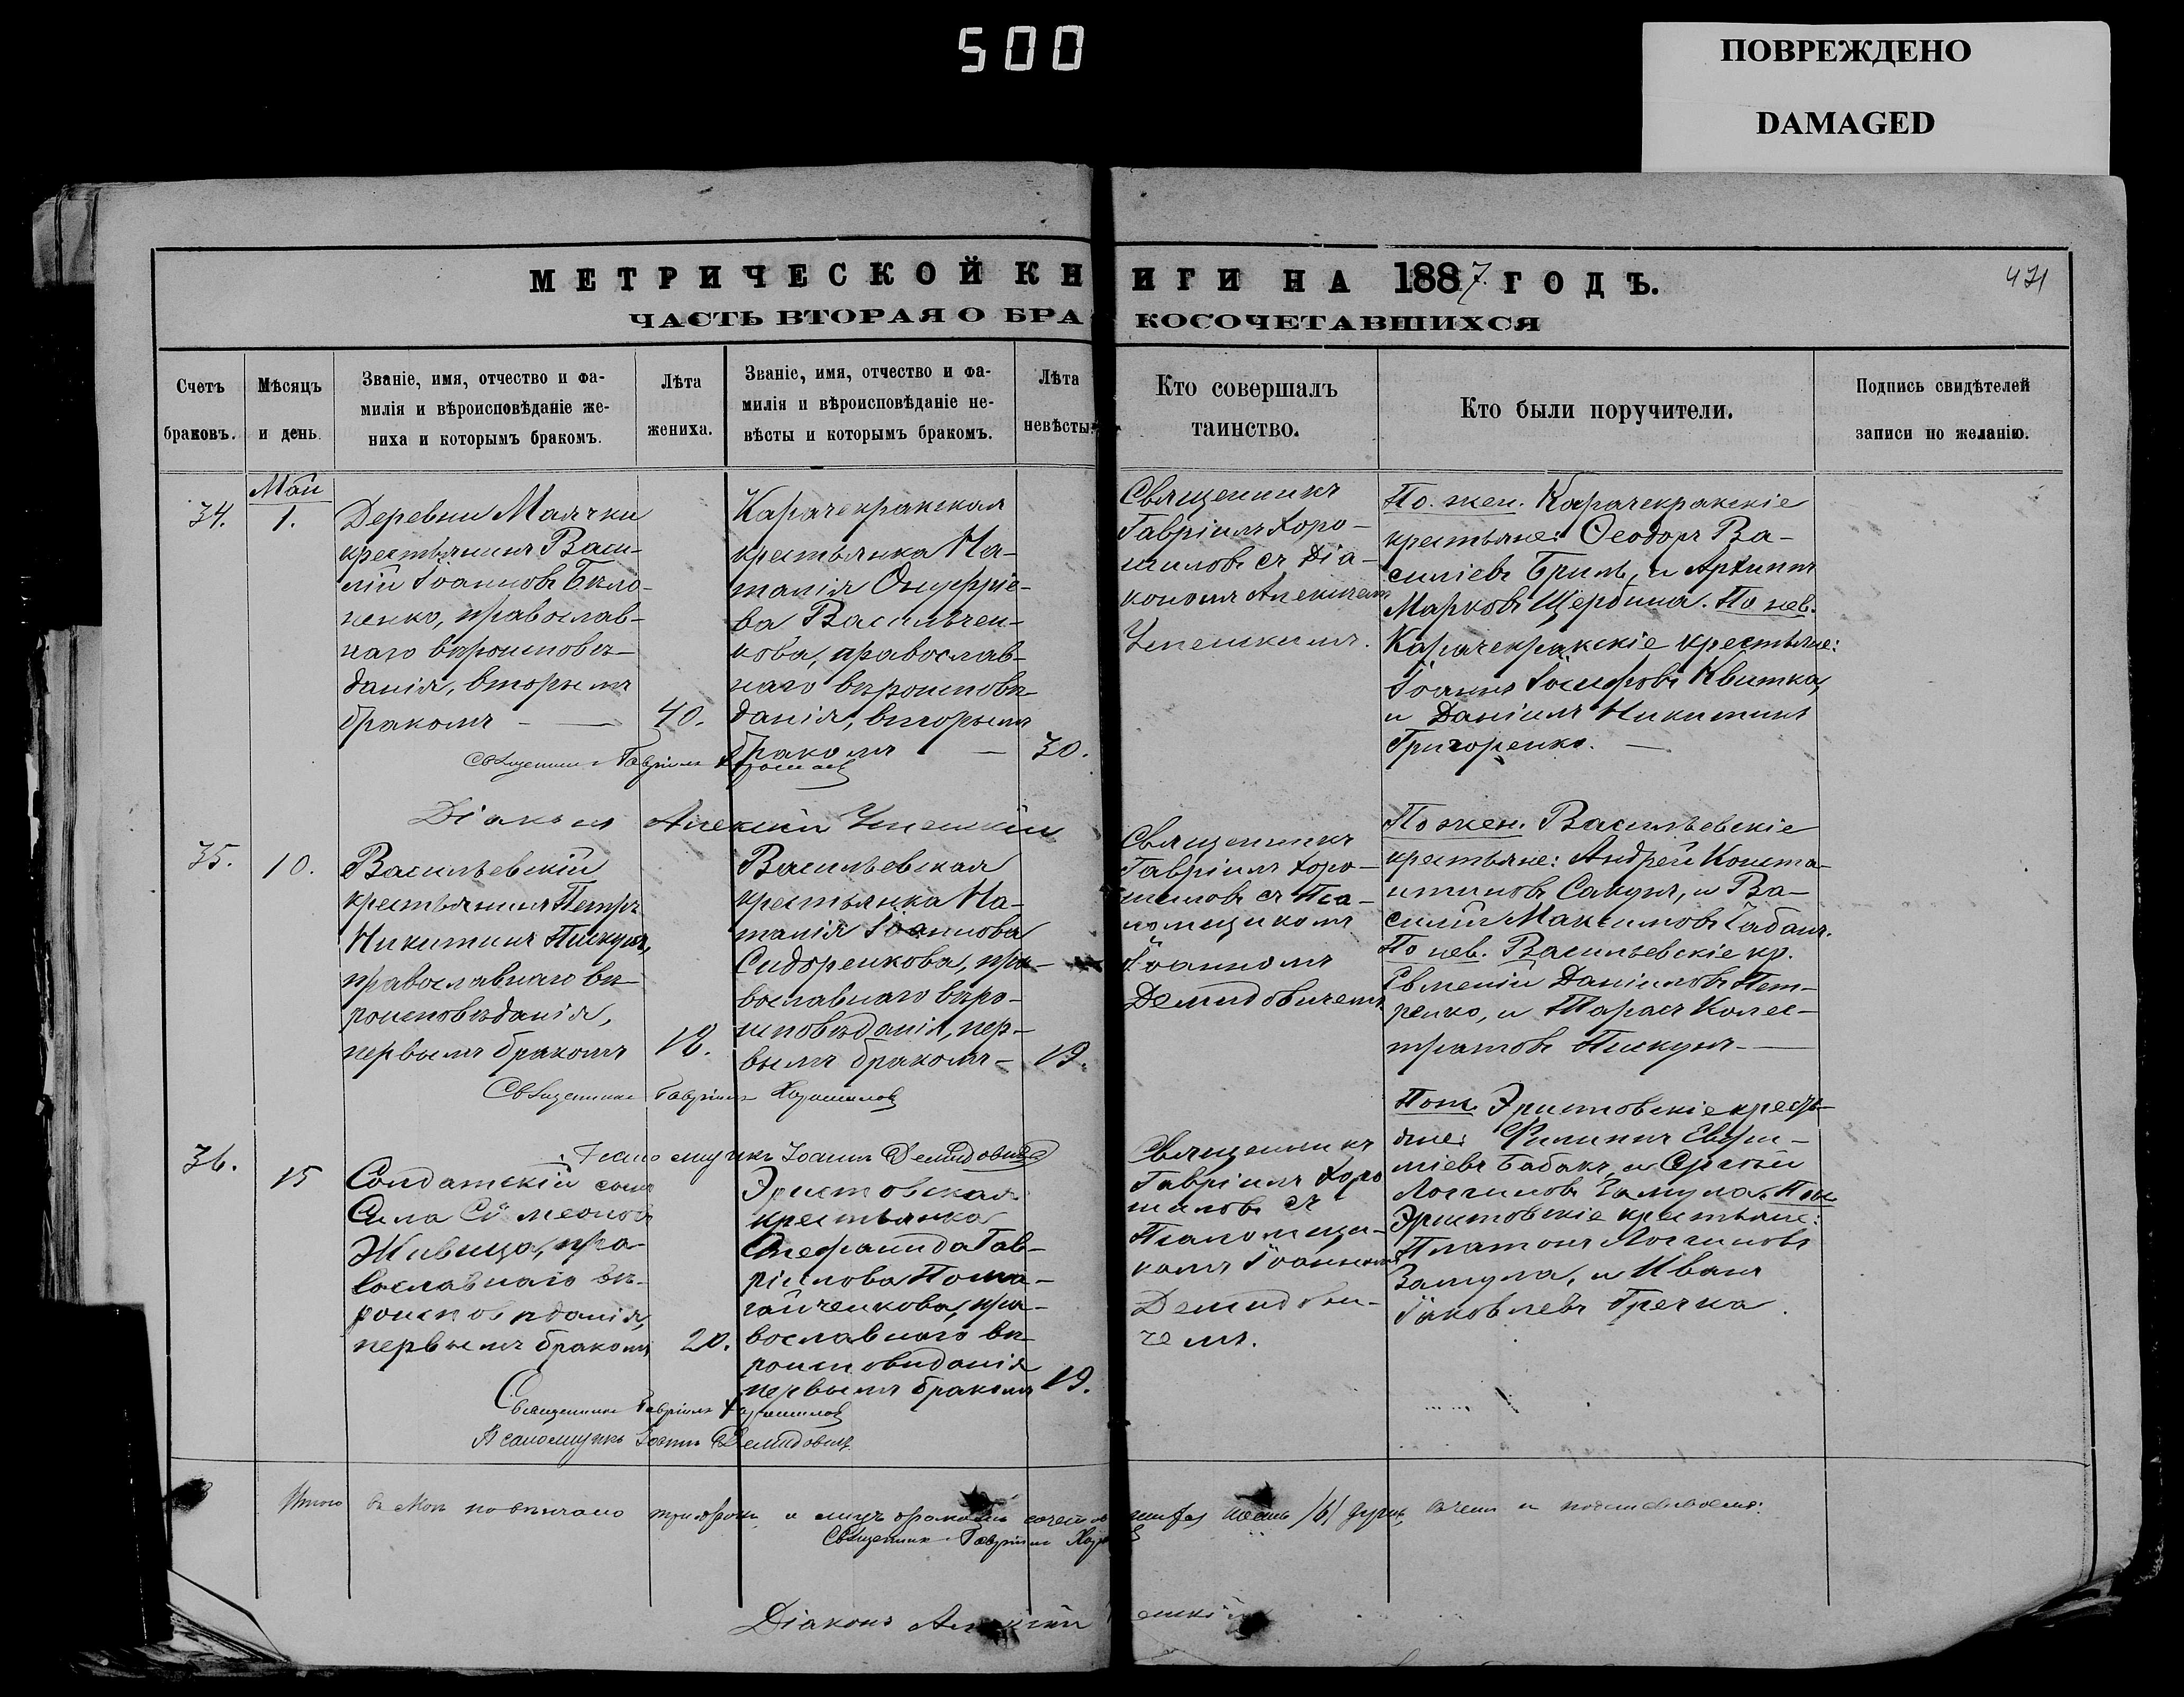 500
ПОВРЕЖДЕНО
DAMAGED
МЕТРИЧЕСКОЙ КНИГИ НА 1887 ГОДЪ.
471
ЧАСТЬ ВТОРАЯ О БРАКОСОЧЕТАВШИХСЯ
Счетъ
браковъ.
Мѣсяцъ
и день.
Званіе, имя, отчество и фа-
милія и вѣроисповѣданіе же-
ниха и которымъ бракомъ.
Лѣта
жениха.
Званіе, имя, отчество и фа-
милія и вѣроисповѣданіе не-
вѣсты и которымъ бракомъ.
Лѣта
невѣсты.
Кто совершалъ
таинство.
Кто были поручители.
Подпись свидѣтелей
записи по желанію.
Май
34.
1.
Деревни Маячки
крестьянинъ Васи-
лій Іоанновъ Бѣло-
ненко, православ-
наго вѣроисповѣ-
данія, вторымъ
бракомъ -
40.
Карачекракская
крестьянка На-
талія Онуфріе-
ва Васильчен-
кова, православ-
наго вѣроисповѣ-
данія, вторымъ
бракомъ -
30.
Священникъ
Гавріилъ Хоро-
шиловъ съ Діа-
кономъ Алексіемъ
По. жен. Карачекракскіе
крестьяне: Ѳеодоръ Ва-
силіевъ Бриль, и Архипъ
Марковъ Щербина. По нев.
Карачекракскіе крестьяне:
Іоаннъ Іосифовъ Квитка,
и Даніилъ Никитинъ
Григоренко.
Священникъ Гавріилъ Хорошиловъ
Діаконъ Алексій
35.
10.
Васильевскій
крестьянинъ Петръ
Никитинъ Пискунъ,
православнаго вѣ-
роисповѣданія,
первымъ бракомъ
18.
Васильевская
крестьянка На-
талія Іоаннова
Сидоренкова, пра-
вославнаго вѣро-
исповѣданія, пер-
вымъ бракомъ -
19.
Священникъ
Гавріилъ Хоро-
шиловъ съ Пса-
ломщикомъ
Іоанномъ
Демидовичемъ
По жен. Васильевскіе
крестьяне: Андрей Конста-
нтиновъ Сакунъ, и Ва-
силій Максимовъ Чабанъ.
По нев. Васильевскіе кр.
Евменій Даніиловъ Пет-
ренко, и Тарасъ Калес-
тратовъ Пискунъ.
Священникъ Гавріилъ Хорошиловъ
Псаломщикъ Іоаннъ Демидовичъ
36.
15
Солдатскій сынъ
Сила Сѵмеоновъ
Живица, пра-
вославнаго вѣ-
роисповѣданія,
первымъ бракомъ
20.
Эристовская
крестьянка
Стефанида Гав-
ріилова
православнаго вѣ-
роисповѣданія
первымъ бракомъ
19.
Священникъ
Гавріилъ Хоро
шиловъ съ
Псаломщи-
комъ Іоанномъ
Демидови-
чемъ.
По ж. Эристовскіе кресть-
яне: Филиппъ Евфи-
міевъ Бабакъ, и Сергій
Логгиновъ Замула. По н.
Эристовскіе крестьяне:
Платонъ Логгиновъ
Замула, и Иванъ
Іаковлевъ Гречка.
Священникъ Гавріилъ Хорошиловъ
Псаломщикъ Іоаннъ Демидовичъ
Итого въ Маѣ повѣнчано три брака, и лицъ бракомъ шесть /6/
Священникъ Гавріилъ
Діаконъ Алексій